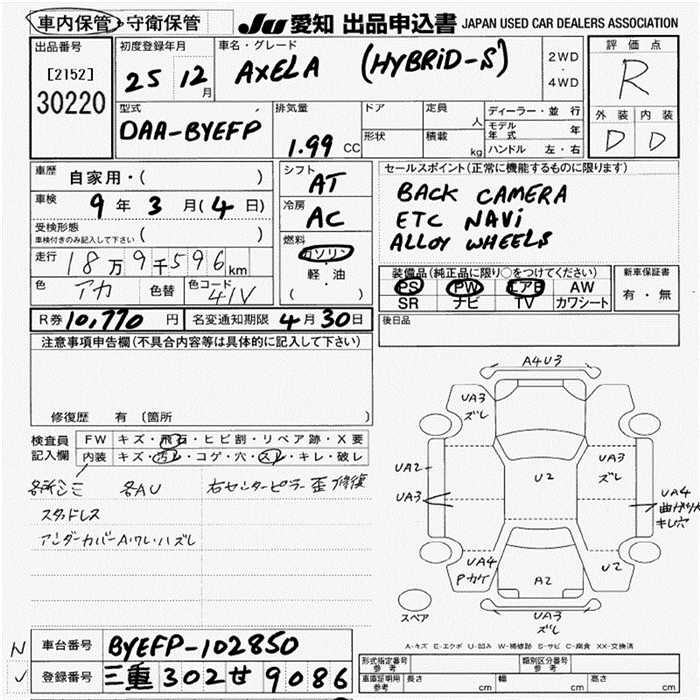 車内保管・守衛保管 JU 愛知 出品申込書 JAPAN USED CAR DEALERS ASSOCIATION
出品番号 初度登録年月 車名・グレード 評価点
[2152] 25 12月 AXELA (HYBRID-S) 2WD・4WD R
30220
型式 排気量 ドア 定員 人 ディーラー・並行 外装 内装
DAA-BYEFP 1.99 CC 形状 積載 kg モデル年式 年 D D
ハンドル 左・右
車歴 自家用・( ) シフト AT セールスポイント(正常に機能するものに限ります)
車検 9年 3月(4日) 冷房 AC BACK CAMERA
受検形態 ( ) ETC NAVi
車検付きのみ記入して下さい 燃料 ALLOY WHEELS
走行 18万9千596km ガソリン
色 アカ 色替 色コード 41V 軽・油 ( )
装備品(純正品に限り○をつけてください) 新車保証書
PS PW エアB AW 有・無
SR ナビ TV カワシート
R券 10,770円 名変通知期限 4月30日 後日品
注意事項申告欄(不具合内容等は具体的に記入して下さい)
修復歴 有 〔箇所
検査員記入欄 FW キズ・飛石・ヒビ割・リペア跡・X要
内装 キズ・汚レ・コゲ・穴・スレ・キレ・破レ
各所シミ 各AU 右センターピラー歪修復
スタッドレス
アンダーカバーA・ワレ・ハズレ
A4U3
UA3 ズレ
UA2
UA3
U2
UA3 ズレ
UA4 キレ穴
UA4 Pカケ
A2
U2
UA3 ズレ
スペア
A-キズ E-エクボ U-凹み W-補修跡 S-サビ C-腐食 XX-交換済
N 車台番号 BYEFP-102850
レ 登録番号 三重 302 せ 9086
形式指定番号 参考 類別区分番号 参考
車庫証明用 参考 長さ cm 幅 cm 高さ cm